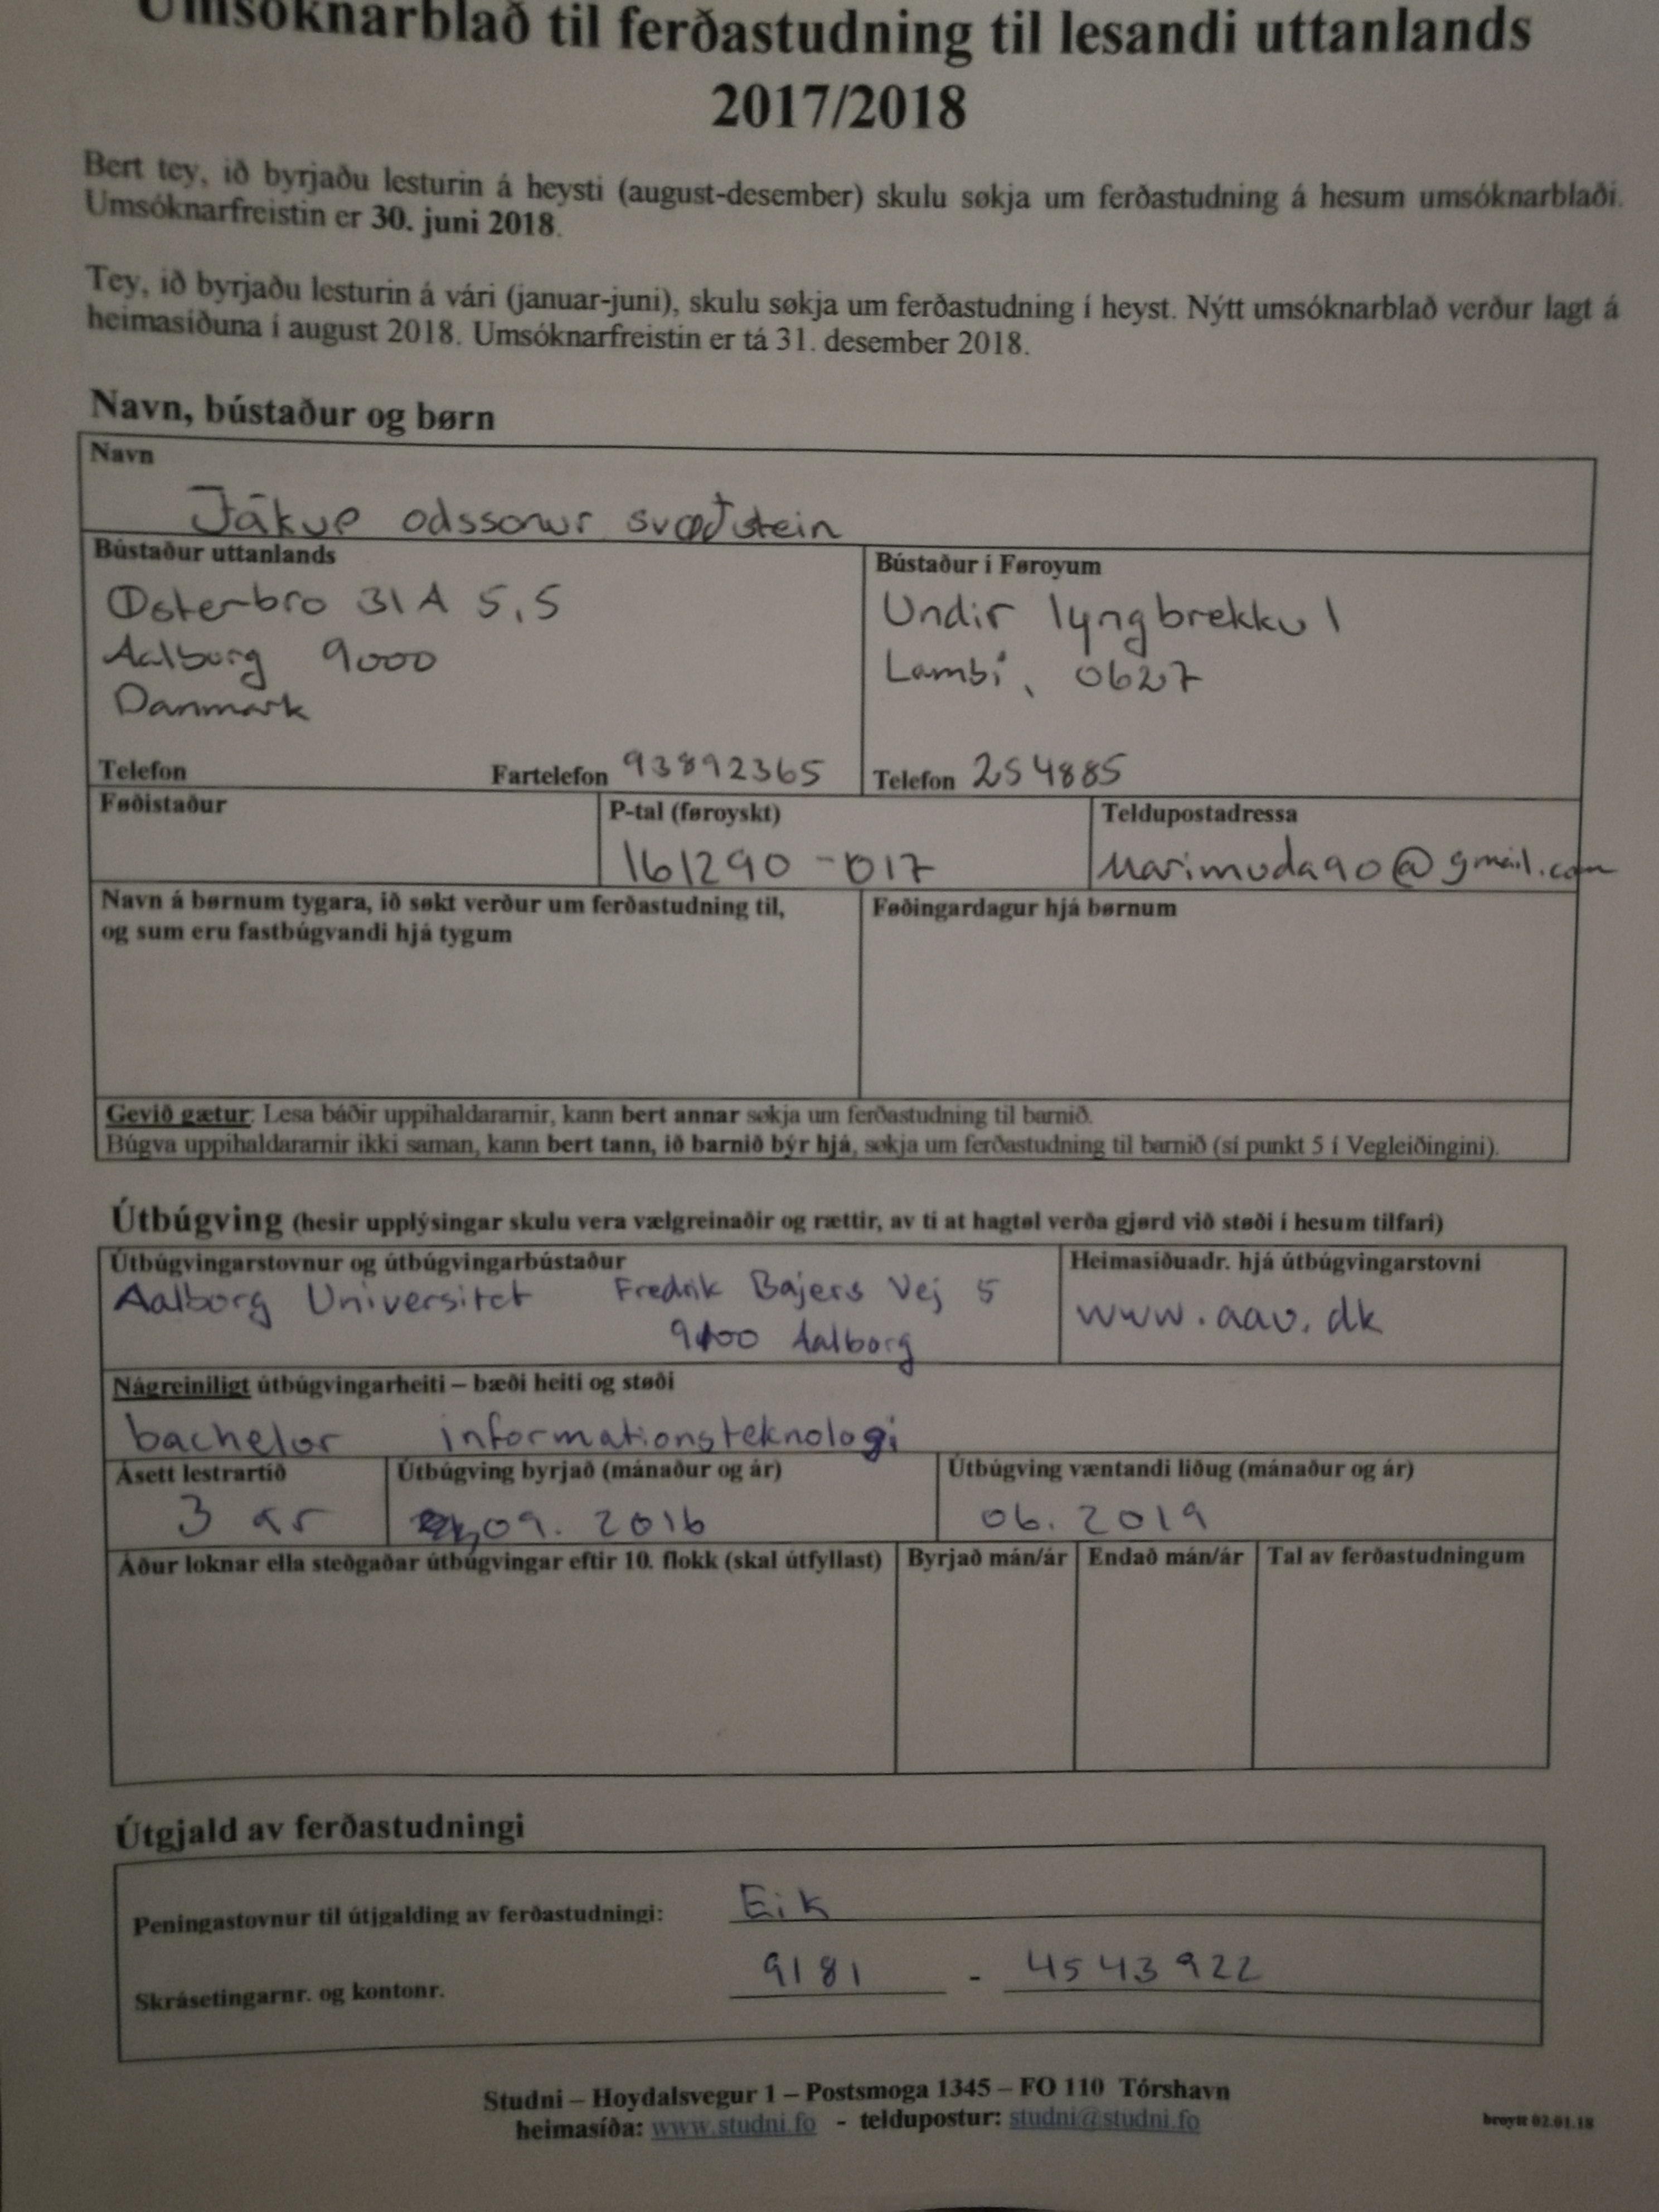 Umsóknarblað til ferðastudning til lesandi uttanlands
2017/2018
Bert tey, ið byrjaðu lesturin á heysti (august-desember) skulu søkja um ferðastudning á hesum umsóknarblaði.
Umsóknarfreistin er 30. juni 2018.
Tey, ið byrjaðu lesturin á vári (januar-juni), skulu søkja um ferðastudning í heyst. Nýtt umsóknarblað verður lagt á
heimasíðuna í august 2018. Umsóknarfreistin er tá 31. desember 2018.
Navn, bústaður og børn
Navn
Jákup odssonur
Bústaður uttanlands
Østerbro 31A 5,5
Aalborg 9000
Danmark
Telefon Fartelefon 93892365
Bústaður í Føroyum
Undir lyngbrekku 1
Lambi, 0627
Telefon 254885
Føðistaður
P-tal (føroyskt)
161290-017
Teldupostadressa
Marimuda90@gmail.com
Navn á børnum tygara, ið søkt verður um ferðastudning til,
og sum eru fastbúgvandi hjá tygum
Føðingardagur hjá børnum
Gevið gætur: Lesa báðir uppihaldararnir, kann bert annar søkja um ferðastudning til barnið.
Búgva uppihaldararnir ikki saman, kann bert tann, ið barnið býr hjá, søkja um ferðastudning til barnið (sí punkt 5 í Vegleiðingini).
Útbúgving (hesir upplýsingar skulu vera vælgreinaðir og rættir, av tí at hagtøl verða gjørd við støði í hesum tilfari)
Útbúgvingarstovnur og útbúgvingarbústaður
Aalborg Universitet Fredrik Bajers Vej 5
Aalborg
Heimasíðuadr. hjá útbúgvingarstovni
www.aau.dk
Nágreiniligt útbúgvingarheiti – bæði heiti og støði
bachelor informationsteknologi
Ásett lestrartíð
3 ár
Útbúgving byrjað (mánaður og ár)
09. 2016
Útbúgving væntandi liðug (mánaður og ár)
06. 2019
Áður loknar ella steðgaðar útbúgvingar eftir 10. flokk (skal útfyllast) Byrjað mán/ár Endað mán/ár Tal av ferðastudningum
Útgjald av ferðastudningi
Peningastovnur til útjgalding av ferðastudningi: Eik
Skrásetingarnr. og kontonr. 9181 - 4543922
Studni – Hoydalsvegur 1 – Postsmoga 1345 – FO 110 Tórshavn
heimasíða: www.studni.fo - teldupostur: studni@studni.fo
broytt 02.01.18